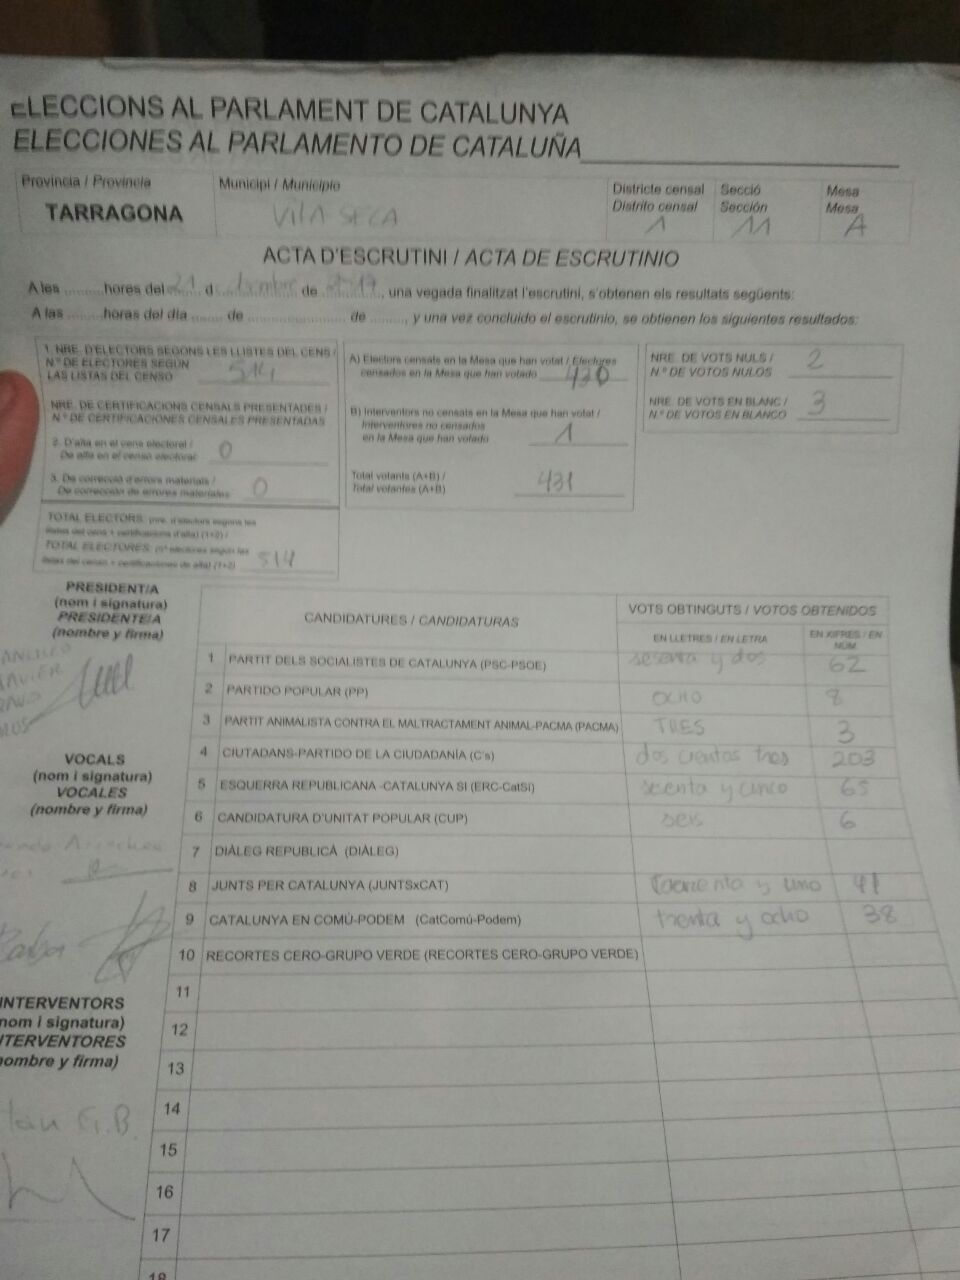 ELECCIONS AL PARLAMENT DE CATALUNYA
ELECCIONES AL PARLAMENTO DE CATALUÑA
Provincia / Provincia
TARRAGONA
Municipi / Municipio
VilA SECA
Districte censal
Distrito censal
1
Secció
Sección
11
Mesa
Mesa
A
ACTA D'ESCRUTINI / ACTA DE ESCRUTINIO
A les ..........hores del 21 d de 2017, una vegada finalitzat l'escrutini, s'obtenen els resultats següents:
A las ..........horas del día ........ de ........................ de ........., y una vez concluido el escrutinio, se obtienen los siguientes resultados:
1. NRE. D'ELECTORS SEGONS LES LLISTES DEL CENS /
N.º DE ELECTORES SEGÚN
LAS LISTAS DEL CENSO 514
NRE. DE CERTIFICACIONS CENSALS PRESENTADES /
N.º DE CERTIFICACIONES CENSALES PRESENTADAS
2. D'alta en el cens electoral /
De alta en el censo electoral 0
3. De correcció d'errors materials /
De corrección de errores materiales 0
TOTAL ELECTORS: (nre. d'electors segons les
llistes del cens + certificacions d'alta) (1+2) /
TOTAL ELECTORES: (nº electores según las
listas del censo + certificaciones de alta) (1+2) 514
A) Electors censats en la Mesa que han votat / Electores
censados en la Mesa que han votado 430
B) Interventors no censats en la Mesa que han votat /
Interventores no censados
en la Mesa que han votado 1
Total votants (A+B) /
Total votantes (A+B) 431
NRE. DE VOTS NULS /
N.º DE VOTOS NULOS 2
NRE. DE VOTS EN BLANC /
N.º DE VOTOS EN BLANCO 3
PRESIDENT/A
(nom i signatura)
PRESIDENTE/A
(nombre y firma)
VOCALS
(nom i signatura)
VOCALES
(nombre y firma)
INTERVENTORS
nom i signatura)
NTERVENTORES
nombre y firma)
CANDIDATURES / CANDIDATURAS
VOTS OBTINGUTS / VOTOS OBTENIDOS
EN LLETRES / EN LETRA
EN XIFRES / EN
NÚM.
1 PARTIT DELS SOCIALISTES DE CATALUNYA (PSC-PSOE) sesenta y dos 62
2 PARTIDO POPULAR (PP) ocho 8
3 PARTIT ANIMALISTA CONTRA EL MALTRACTAMENT ANIMAL-PACMA (PACMA) TRES 3
4 CIUTADANS-PARTIDO DE LA CIUDADANÍA (C's) dos cientos tres 203
5 ESQUERRA REPUBLICANA -CATALUNYA SÍ (ERC-CatSí) y cinco 65
6 CANDIDATURA D'UNITAT POPULAR (CUP) seis 6
7 DIÀLEG REPUBLICÀ (DIÀLEG)
8 JUNTS PER CATALUNYA (JUNTSxCAT) y uno 41
9 CATALUNYA EN COMÚ-PODEM (CatComú-Podem) trenta y ocho 38
10 RECORTES CERO-GRUPO VERDE (RECORTES CERO-GRUPO VERDE)
11
12
13
14
15
16
17
18